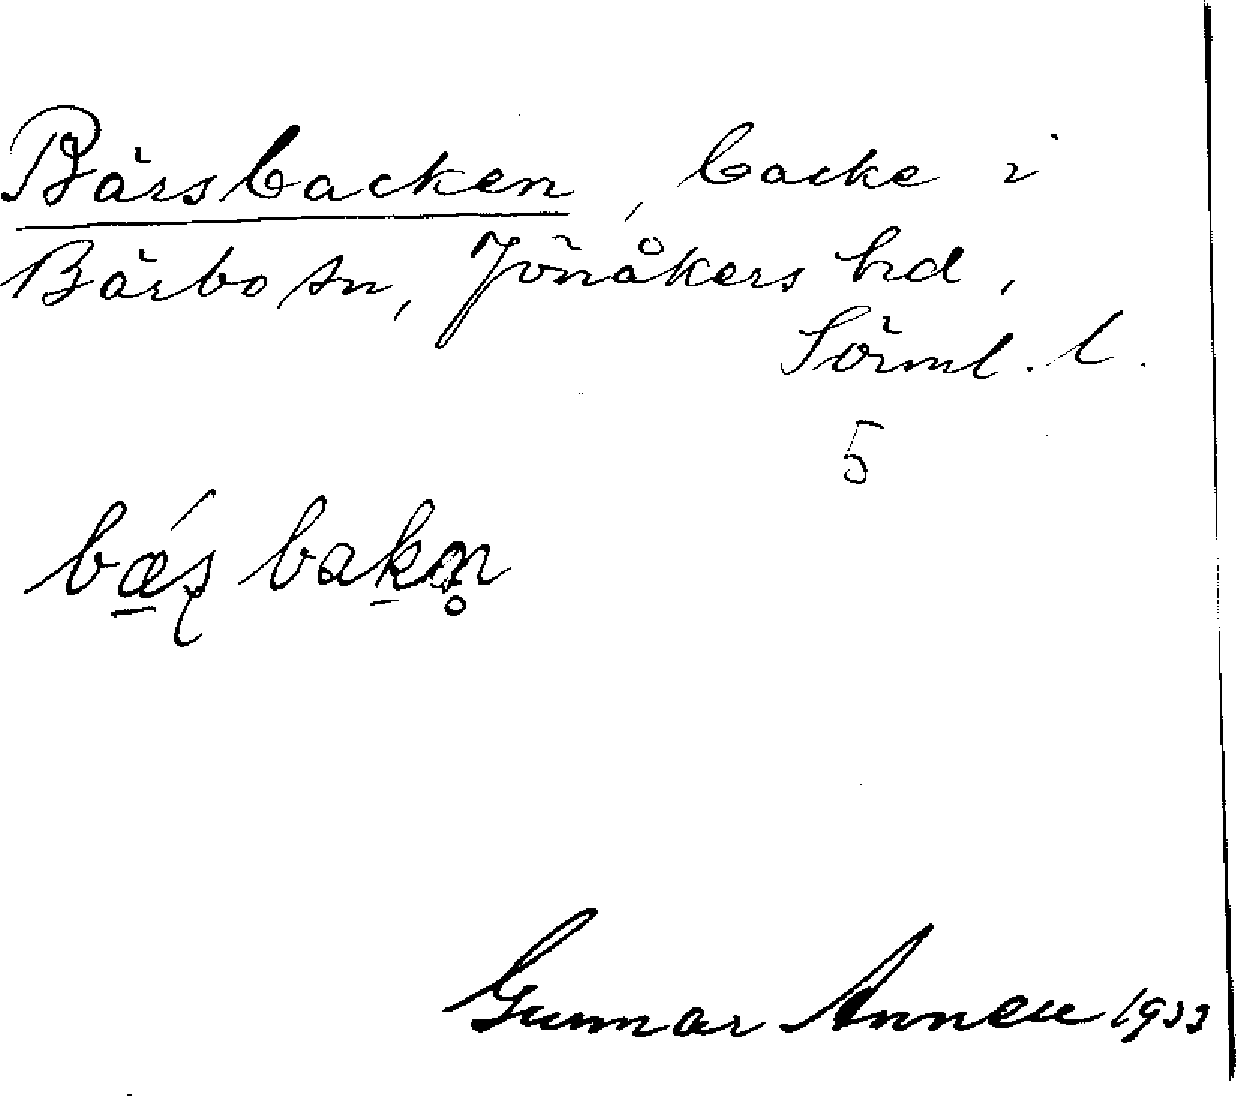 Bärsbacken, backe i
Bärbo sn, Jönåkers hd,
Sörml. l.
5
Gunnar Annell 1933